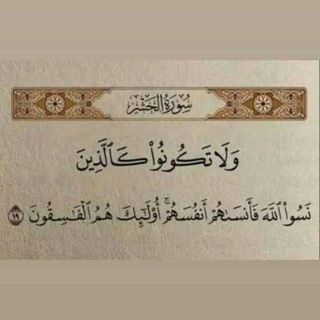 سُورَةُ الحَشْرِ
وَلَا تَكُونُوا۟ كَٱلَّذِينَ
نَسُوا۟ ٱللَّهَ فَأَنسَىٰهُمْ أَنفُسَهُمْ ۚ أُو۟لَٰٓئِكَ هُمُ ٱلْفَٰسِقُونَ ١٩